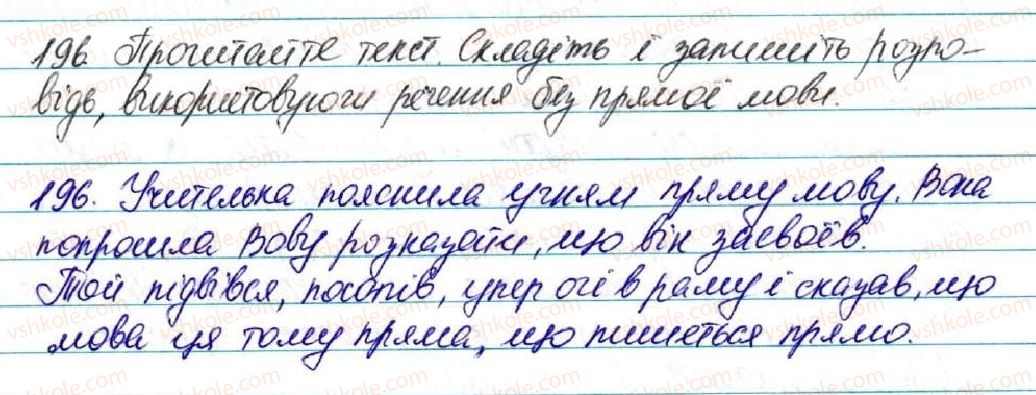 196. Прочитайте текст. Складіть і запишіть розпо-
відь, використовуючи речення без прямої мови.
196. Учителька пояснила учням пряму мову. Вона
попросила Вову розказати, що він засвоїв.
Той підвівся, посопів, упер очі в раму і сказав, що
мова ця тому пряма, що пишеться прямо.